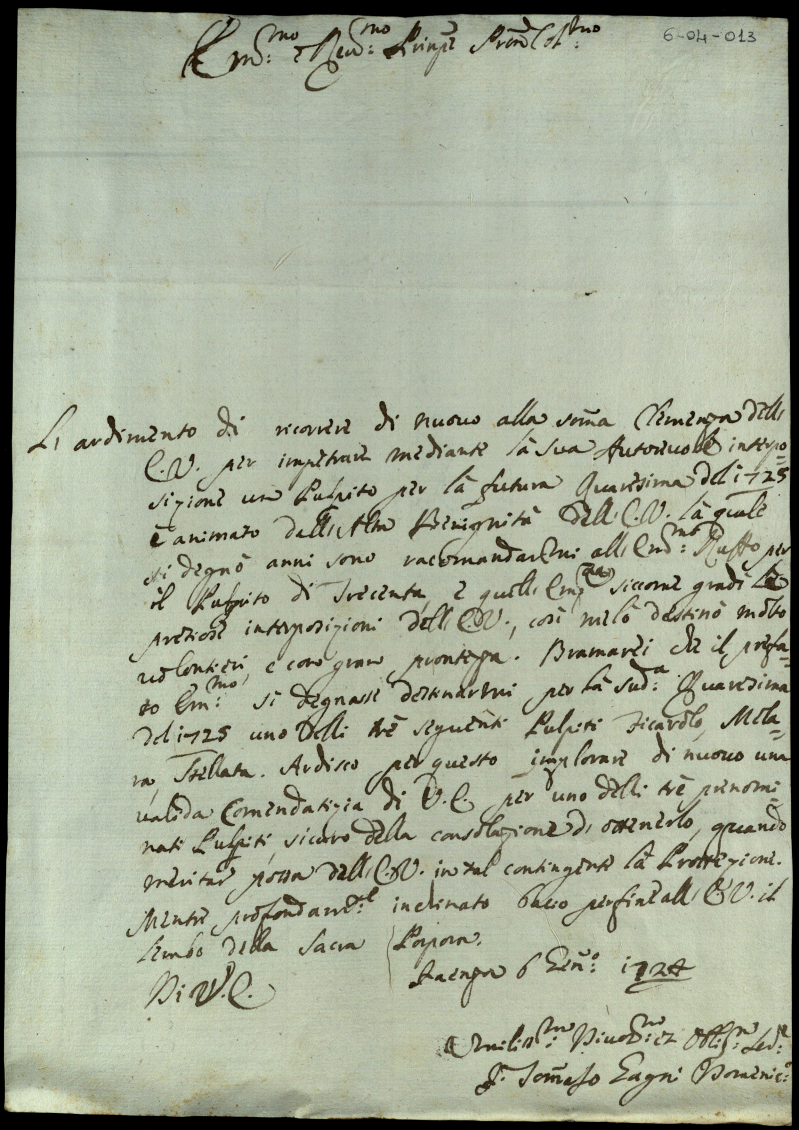 6-04-013
Em:mo e Rev:mo Prinpe Prõn Col:mo
L'ardimento di ricorrere di nuovo alla soma Clemenza dell'
E.V. per impetrare mediante la sua Autorevole interpo=
sizione un Pulpito per la futura Quaresima del 1725
è animato dall'Alta Benignità dell'E.V. la quale
si degnò anni sono racomandarmi all'Em:mo Ruffo per
il Pulpito di Trecenta, e quell'Emza siccome gradì le
preziose interposizioni dell'E.V., così me lo destinò molto
volontieri, e con gran prontezza. Bramarei che il prefa=
to Em:mo si degnasse destinarmi per la sud:a Quaresima
del 1725 uno delli trè seguenti Pulpiti Ficarolo, Mela=
ra, Stellata. Ardisco per questo implorare di nuovo una
valida Comendatizia di V.E. per uno delli trè prenomi=
nati Pulpiti, sicuro della consolazione di ottenerlo, quando
meritar possa dall'E.V. in tal contingente la Protezione.
Mentre profondame:te inclinato bacio per fine all'E.V. il
lembo della Sacra Porpora.
Di V.E.
Faenza 6 Gen:o 1724
Umilis:mo Divot:mo et Obblig:mo Ser:e
F. Tomaso Domenic:o